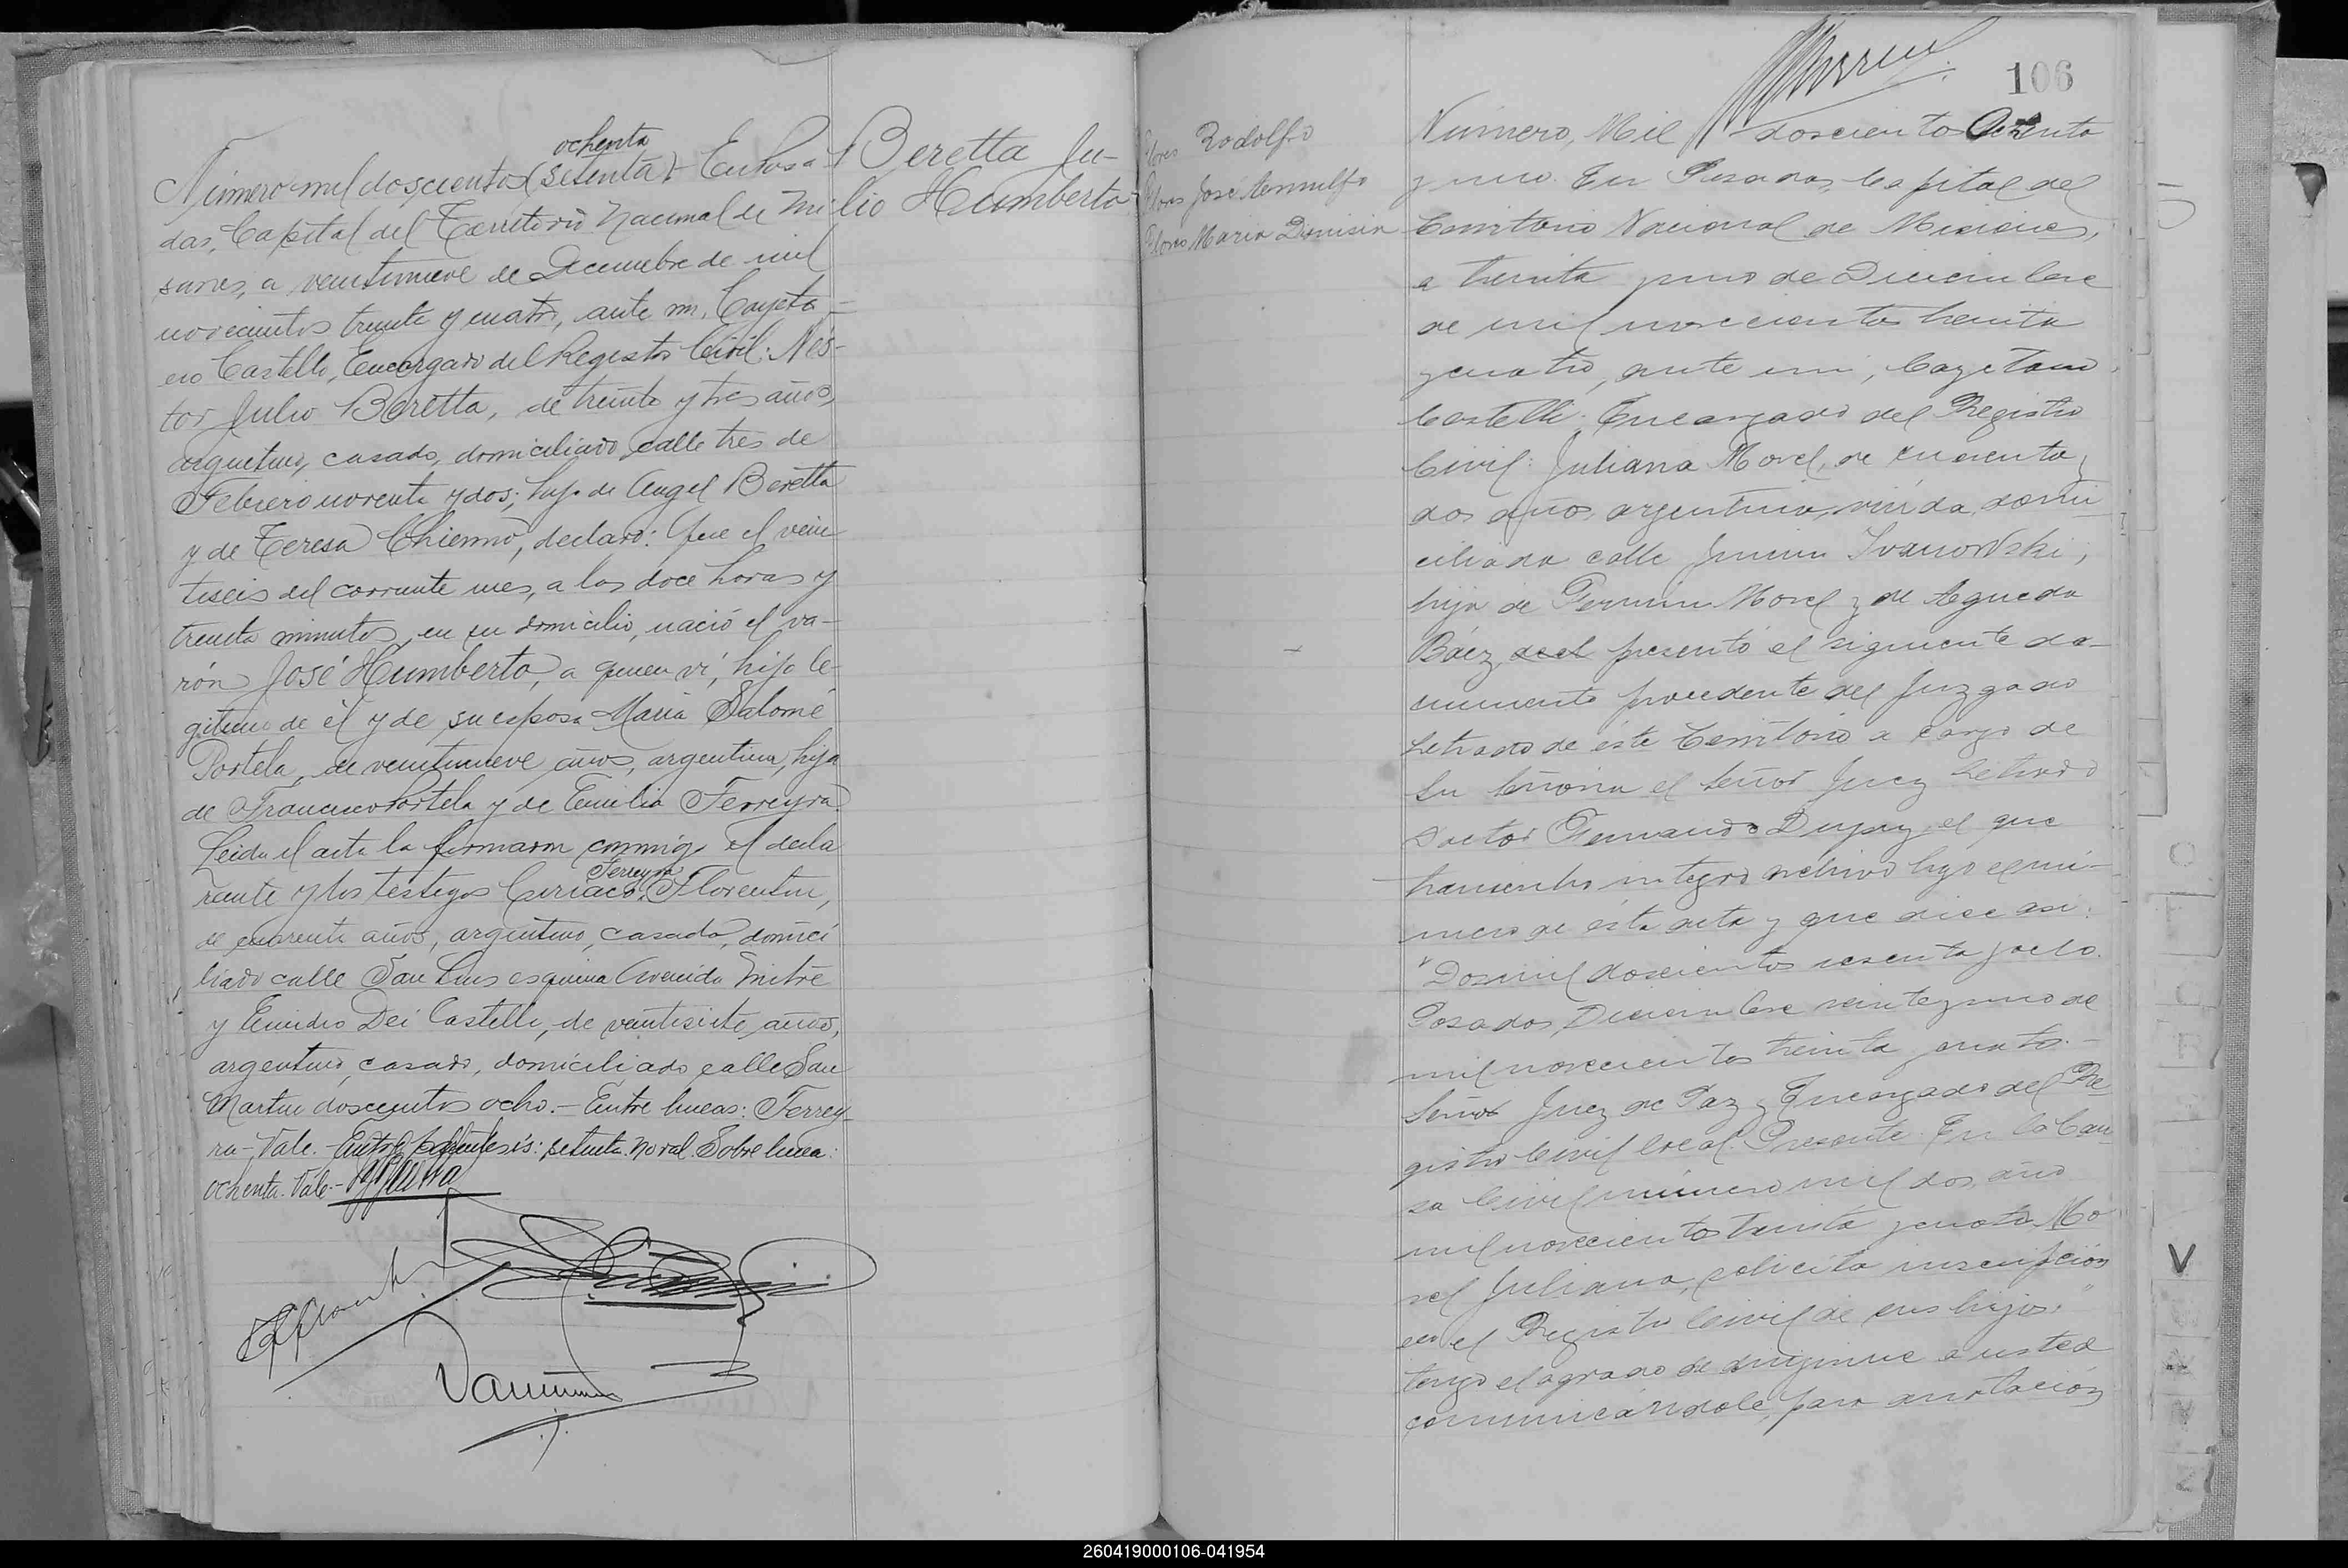 ochenta
Número mil doscientos (setenta) En Posa-
das, Capital del Territorio Nacional de Mi
siones, a veintinueve de Diciembre de mil
novecientos treinta y cuatro, ante mi, Cayeta-
no Castelli, Encargado del Registro Civil: Nés-
tor Julio Beretta, de treinta y tres años,
argentino, casado, domiciliado calle tres de
Febrero noventa y dos; hijo de Angel Beretta
y de Teresa Chiemmo, declaró: Que el vein-
tiseis del corriente mes, a las doce horas y
treinta minutos, en su domicilio, nació el va-
rón José Humberto, a quien vi, hijo le-
gitimo de él y de su esposa María Salomé
Portela, de veintinueve años, argentina, hija
de Francisco Portela y de Emilia Ferreyra.
Leida el acta la firmaron conmigo el decla
rante y los testigos Ciriaco Florentin,
Ferreyra
de cuarenta años, argentino, casado, domici
liado calle San Luis esquina Avenida Mitre
y Emidio Dei Castelli, de veintisiete años,
argentino, casado, domiciliado calle San
Martin doscientos ocho.- Entre lineas: Ferrey-
ra-Vale.- Entre paréntesis: setenta. no val. Sobre linea:
ochenta. Vale.-
Beretta Ju-
lio Humberto
Flores Rodolfo
Flores José Arnulfo
Flores Maria Dionisia
106
Número, Mil doscientos Ochenta
y uno. En Posadas, Capital del
Territorio Nacional de Misiones,
a treinta y uno de Diciembre
de mil novecientos treinta
y cuatro, ante mi, Cayetano
Castelli, Encargado del Registro
Civil: Juliana Morel, de cincuenta y
dos años, argentina, viuda, domi
ciliada calle Junin Ivanowski,
hija de Fermin Morel y de Agueda
Báez, presentó el siguiente do-
cumento procedente del Juzgado
Letrado de éste Territorio a cargo de
Su Señoria el Señor Juez Letrado
Doctor Fernando Dupuy el que
transcribo integro archivo bajo el nú-
mero de ésta acta y que dice asi:
"Dosmil doscientos sesenta y ocho.
Posadas, Diciembre veinte y uno de
mil novecientos treinta y cuatro.-
Señor Juez de Paz y Encargado del Re
gistro Civil local. Presente. En la Cau
sa Civil número mil dos, año
mil novecientos treinta y cuatro "Mo
rel Juliana, solicita inscripción
en el Registro Civil de sus hijos."
tengo el agrado de dirigirme a usted
comunicándole, para anotación
V
260419000106-041954